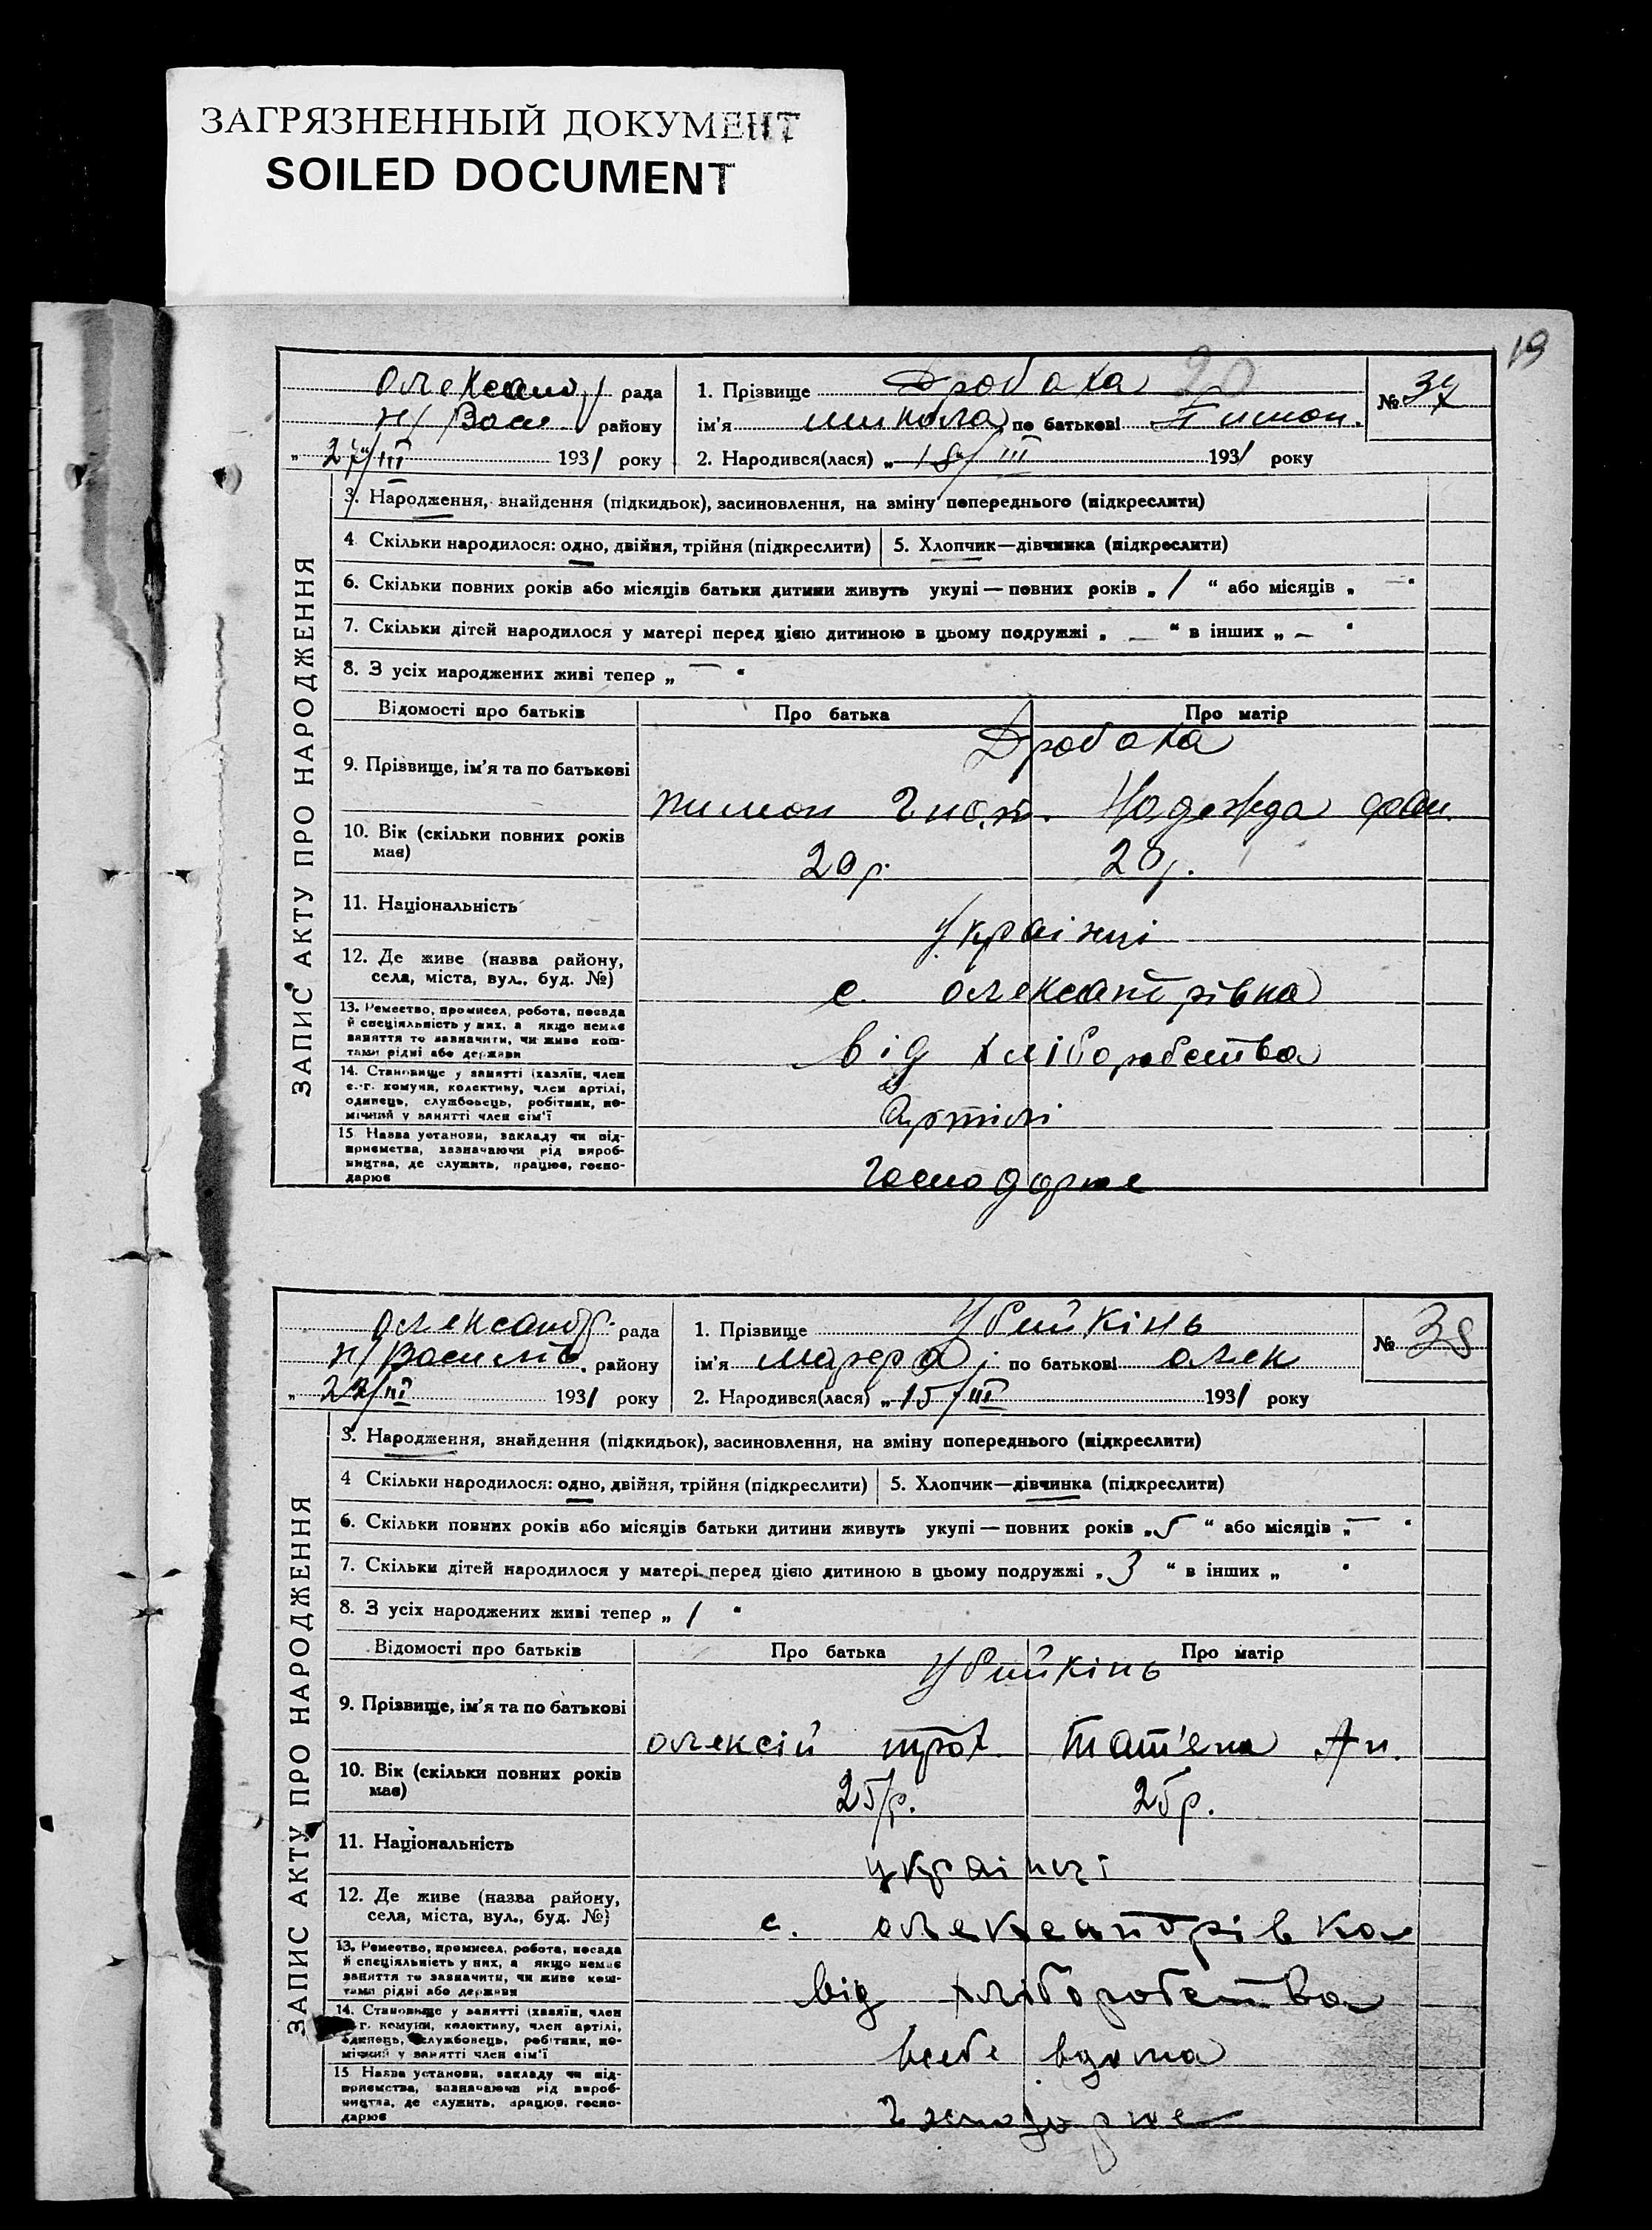 ЗАГРЯЗНЕННЫЙ ДОКУМЕНТ
SOILED DOCUMENT
19
Олександ/ рада
Н/Васи району
„ 27/III 1931 року
1. Прізвище Дробаха 20
ім'я микола по батькові Тимон.
2. Народився(лася) „ 18/III 1931 року
№ 37
ЗАПИС АКТУ ПРО НАРОДЖЕННЯ
3. Народження, знайдення (підкидьок), засиновлення, на зміну попереднього (підкреслити)
4 Скільки народилося: одно, двійня, трійня (підкреслити) 5. Хлопчик—дівчинка (підкреслити)
6. Скільки повних років або місяців батьки дитини живуть укупі — повних років „ 1 “ або місяців „ — “
7. Скільки дітей народилося у матері перед цією дитиною в цьому подружжі „ — “ в інших „ — “
8. З усіх народжених живі тепер „ — “
Відомості про батьків Про батька Про матір
Дробаха
9. Прізвище, ім'я та по батькові
тимон Надежда
10. Вік (скільки повних років має)
20 р. 20 р.
11. Національність
Українці
12. Де живе (назва району,
села, міста, вул., буд. №)
с. олександрівка
13. Ремество, промисел, робота, посада
й спеціяльність у них, а якщо немає
заняття то зазначити, чи живе кош-
тами рідні або держави
від хліборобства
14. Становище у занятті (хазяїн, член
с.-г. комуни, колективу, член артілі,
одинець, службовець, робітник, по-
мічний у занятті член сім'ї
Артілі
15 Назва установи, закладу чи під-
приємства, зазначаючи рід вироб-
ництва, де служить, працює, госпо-
дарює
господарює
олександр. рада
Н/Василів. району
„ 27/III 1931 року
1. Прізвище Убийкінь
ім'я по батькові олек
2. Народився(лася) „ 15/III 1931 року
№ 38
ЗАПИС АКТУ ПРО НАРОДЖЕННЯ
3. Народження, знайдення (підкидьок), засиновлення, на зміну попереднього (підкреслити)
4 Скільки народилося: одно, двійня, трійня (підкреслити) 5. Хлопчик—дівчинка (підкреслити)
6. Скільки повних років або місяців батьки дитини живуть укупі — повних років „ 5 “ або місяців „ — “
7. Скільки дітей народилося у матері перед цією дитиною в цьому подружжі „ 3 “ в інших „ “
8. З усіх народжених живі тепер „ 1 “
Відомості про батьків Про батька Про матір
Убийкінь
9. Прізвище, ім'я та по батькові
олексій трох. Тат'яна Ан.
10. Вік (скільки повних років має)
25 р. 25 р.
11. Національність
українці
12. Де живе (назва району,
села, міста, вул., буд. №)
с. олександрівка
13. Ремество, промисел, робота, посада
й спеціяльність у них, а якщо немає
заняття то зазначити, чи живе кош-
тами рідні або держави
від хліборобства
14. Становище у занятті (хазяїн, член
с.-г. комуни, колективу, член артілі,
одинець, службовець, робітник, по-
мічний у занятті член сім'ї
всебе вдома
15 Назва установи, закладу чи під-
приємства, зазначаючи рід вироб-
ництва, де служить, працює, госпо-
дарює
господарює